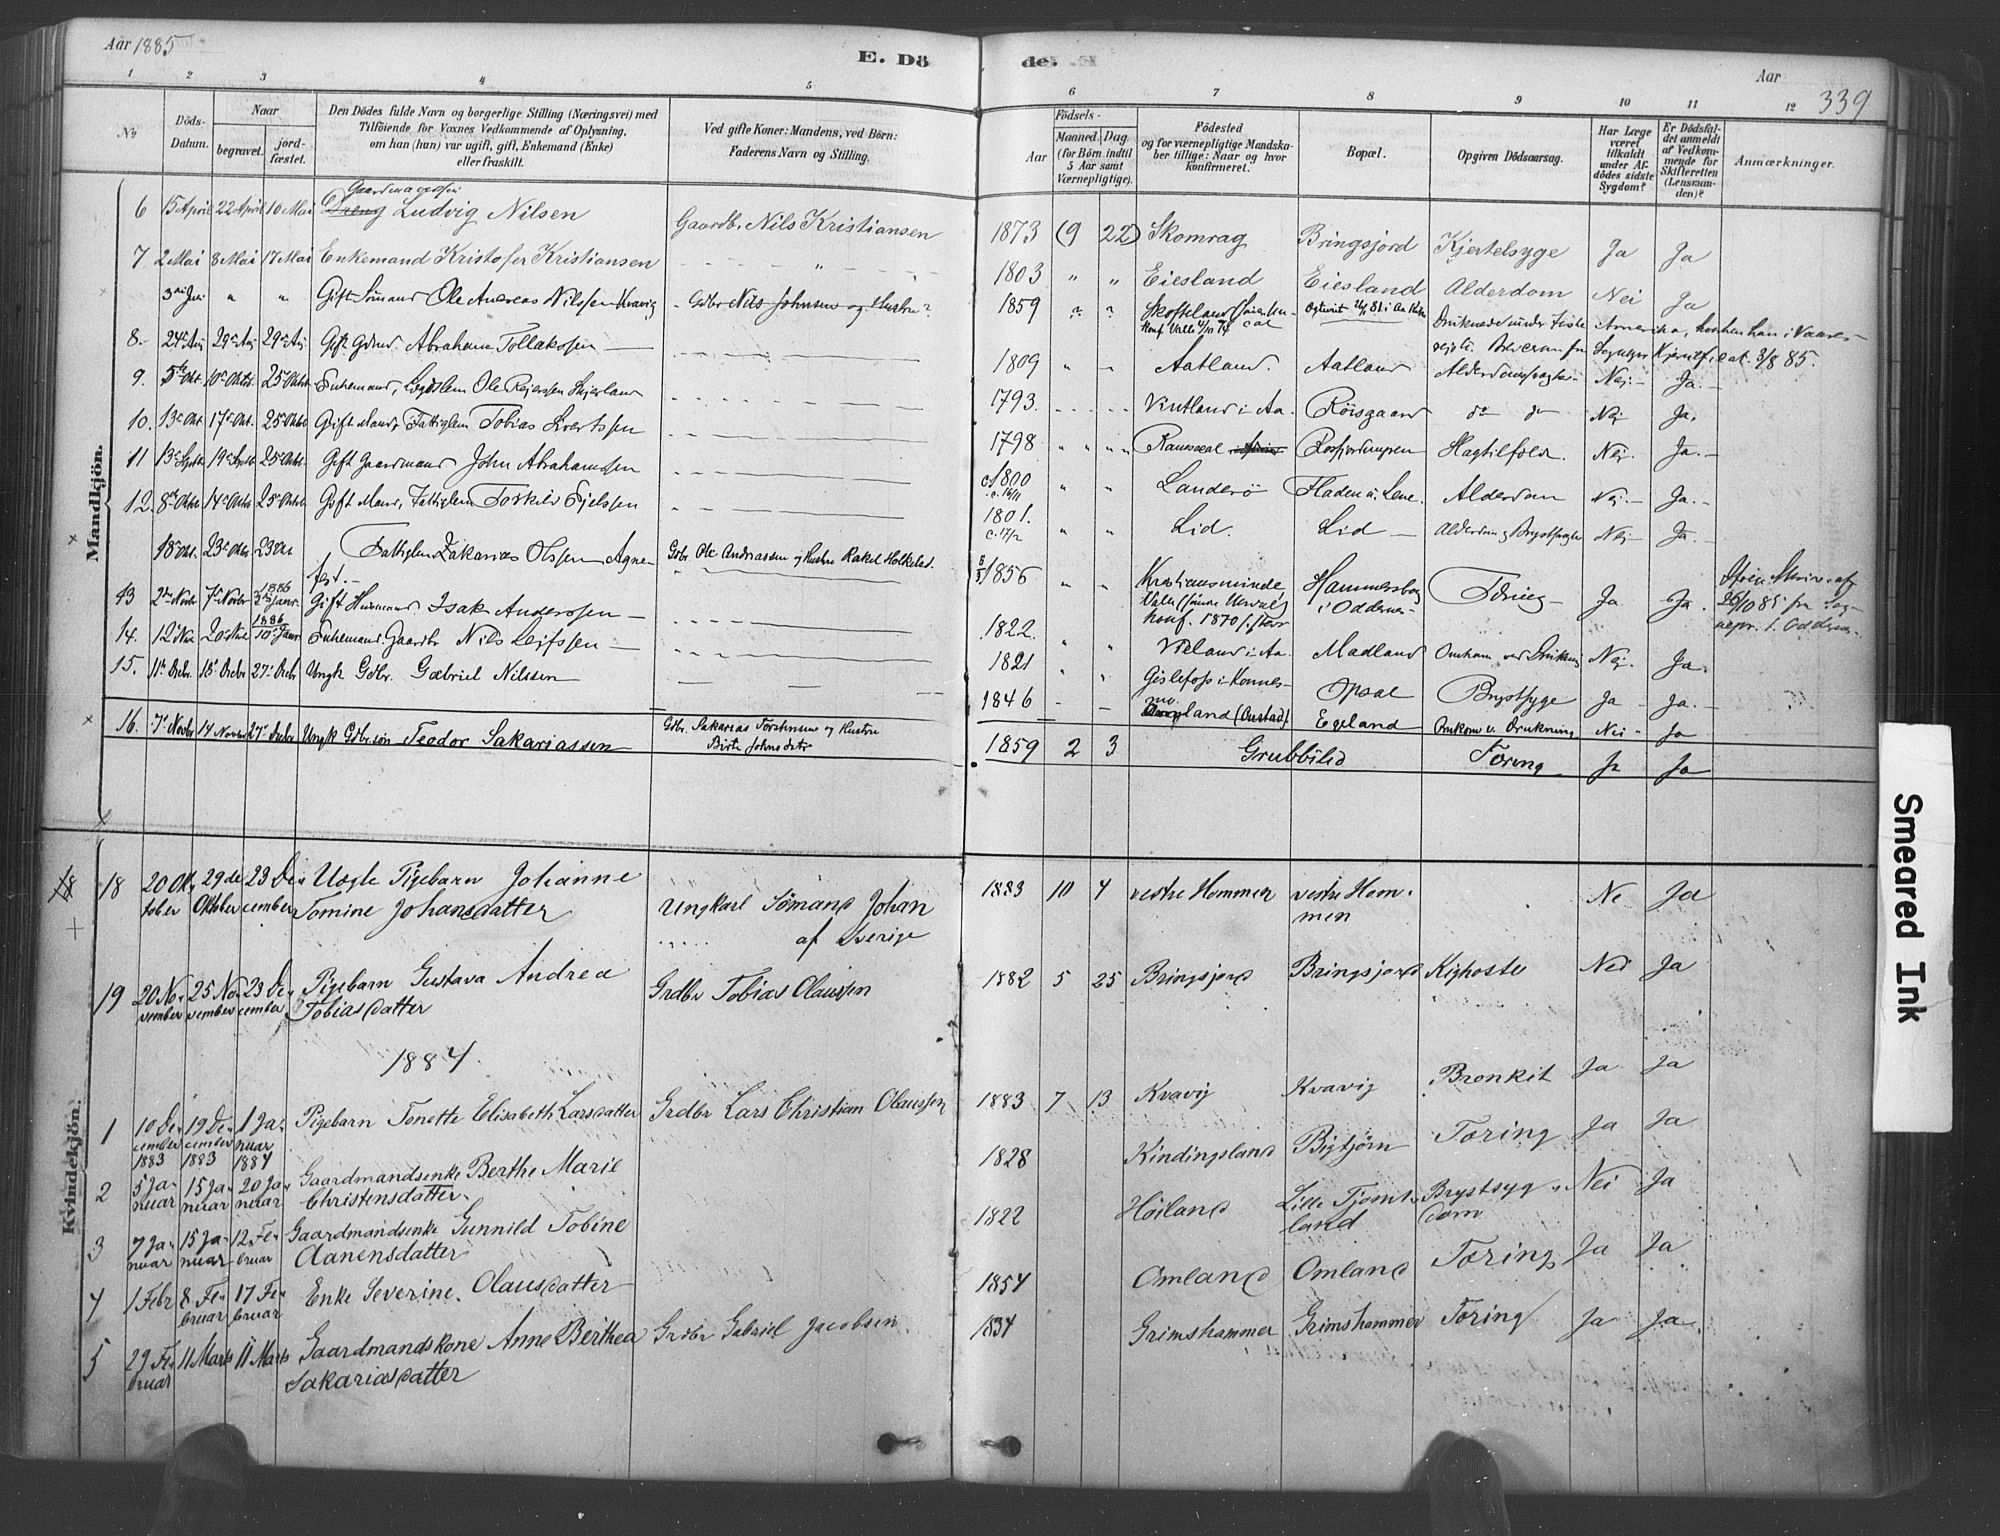 Aar 1885
E. Dö
de. E
Aar
339
1 2 3 4 5 6 7 8 9 10 11 12
No
Döds-
Datum.
Naar
begravet.
jord-
fæstet.
Den Dödes fulde Navn og borgerlige Stilling (Næringsvei) med
Tilföiende for Voxnes Vedkommende af Oplysning,
om han (hun) var ugift, gift, Enkemand (Enke)
eller fraskilt.
Ved gifte Koner: Mandens, ved Börn:
Faderens Navn og Stilling.
Födsels-
Aar
Maaned.
Dag
(for Börn indtil
5 Aar samt
Værnepligtige).
Födested
og for værnepligtige Mandska-
ber tillige: Naar og hvor
konfirmeret.
Bopæl.
Opgiven Dödsaarsag.
Har Læge
været
tilkaldt
under Af-
dödes sidste
Sygdom?
Er Dödsfal-
det anmeldt
af Vedkom-
mende for
Skifteretten
(Lensman-
den)?
Anmærkninger.
Mandkjön.
Gaardmandssön
6 15 April 22 April 10 Mai Dreng Ludvig Nilsen Gaardb. Nils Kristiansen 1873 (9 22) Skomrag Bringsjord Kjertelsyge Ja Ja
7 2 Mai 8 Mai 17 Mai Enkemand Kristofer Kristiansen 1803 " " Eiesland Eiesland Alderdom Nei Ja
" " Gift Sömand Ole Andreas Nilssen Kvavig Gdbr Nils Johnsen og Hustru 1859 " "
Amerika, hvorhen han i Vaares
3/8 85.
8. 24 Aug 29 Aug 29 Aug Gift Gdmd. Abraham Tollaksen 1809 " Aatland. Aatland Nei Ja.
9. 5te Okt 10 Oktb 25 Oktb Enkemand, Ole Reiersen 1793. Vintland i Aa. Röisgaard do do Nei Ja.
10. 13 Okt 17 Okt. 25 Oktb Gift Mand, Fattiglem Tobias Evertssen 1798 " " Nei. Ja.
11 13 Septb 19 Septb 25 Oktb. Gift Gaardmand John Abrahamsen c. 1800 " " Landerö Alderdom Nei. Ja.
12. 8de Oktb 14 Oktb 25 Oktb Gift Mand, Fattiglem Torkild 1801. " " Lid. Lid Alderdom og Brystsyge Nei Ja.
18 Okt. 23 Oktb 23 Okt Fattiglem Zakarias Olssen Agne-
fest. Gdbr. Ole Andreassen og Hustru Rakel 1856 " " Kristiansminde,
Konf. 1870
Hammersborg
i Oddernes Ja Ja.
13 2den Novbr 7de Novbr 1886 Janr. Gift Husmand Isak Anderssen 1822. " " Vieland i Aa. Madland Omkom ved Drukning Nei. Ja.
14. 12 Nov 20 Nov 1886 10 Janr Enkemand, Gaardbr Nils Leifssen 1821 " " Gislefoss i Konnes-
mo. Opsal Brystsyge Ja Ja.
15. 11te Decbr. 18 Decbr 27 Decbr Ungk Gdbr. Gabriel Nilssen 1846 land (Oustad). Egeland Omkom v. Drukning Nei Ja
16. 7de Novbr 14 Novbr 27 Decbr Ungk Gdbrsön Teodor Sakariassen Gdbr. Sakarias Torstensen og Hustru
Birte Johnsdatr 1859 2 3 Grubbölid Tæring Ja Ja
Kvindekjön.
18 20 Ok-
tober 29de
Oktober 23 De-
cember Uægte Pigebarn Johanne
Tomine Johansdatter Ungkarl Sömand Johan
..... af Sverige 1883 10 4 vestre Hommen vestre Hom-
men Nei Ja
19 20 No-
vember 25 No-
vember 23 De-
cember Pigebarn Gustava Andrea
Tobiasdatter Grdbr Tobias Olaussen 1882 5 25 Bringsjord Bringsjord Kighoste Nei Ja
1884.
1 10 De-
cember
1883 19 De-
cember
1883 1 Ja-
nuar
1884 Pigebarn Tonette Elisabeth Larsdatter Grdbr Lars Christian Olaussen 1883 7 13 Kvavig Kvavig Bronkit Ja Ja
2 5 Ja-
nuar 15 Ja-
nuar 20 Ja-
nuar Gaardmandsenke Berthe Marie
Christensdatter. 1828 Kindingsland Bigtjörn Tæring Ja Ja
3 7 Ja-
nuar 15 Ja-
nuar 12 Fe-
bruar Gaardmandsenke Gunnild Tobine
Aanensdatter 1822 Höiland Lille Tjomt-
land Brystsyg-
dom Nei Ja
4 1 Febr 8 Fe-
bruar 17 Fe-
bruar Enke Severine Olausdatter 1854 Omland Omland Tæring Ja Ja
5 29 Fe-
bruar 11 Marts 11 Marts Gaardmandskone Anne Berthea
Sakariasdatter Grdbr Gabriel Jacobsen 1834 Grimshammer Grimshammer Tæring Ja Ja
Smeared Ink